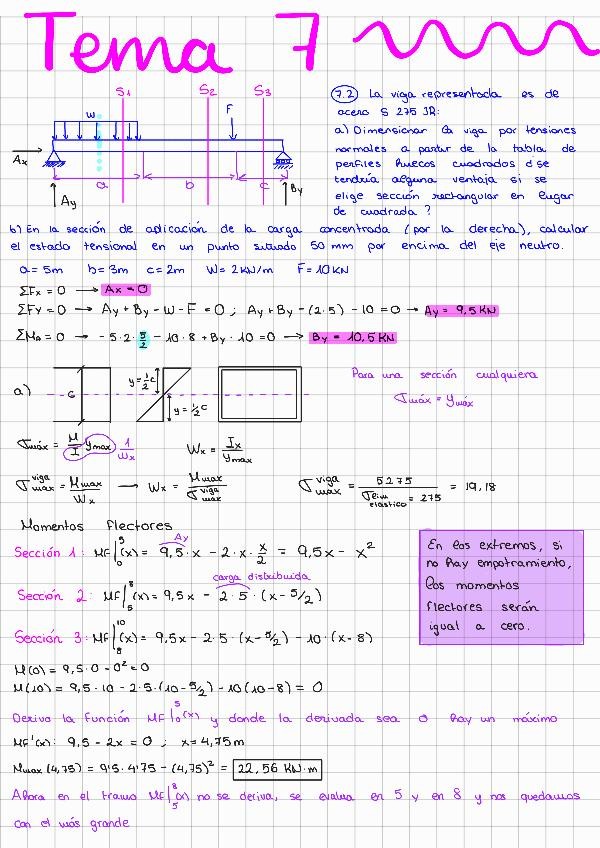 Tema 7
S1
S2
S3
W
F
Ax
a
b
c
Ay
By
7.2 La viga representada es de
acero S 275 JR:
a) Dimensionar la viga por tensiones
normales a partir de la tabla de
perfiles huecos cuadrados d'se
tendría alguna ventaja si se
elige sección rectangular en lugar
de cuadrada ?
b) En la sección de aplicación de la carga concentrada (por la derecha), calcular
el estado tensional en un punto situado 50 mm por encima del eje neutro.
a = 5m b = 3m c = 2m W = 2 kN/m F = 10 KN
ΣFx = 0 → Ax = 0
ΣFy = 0 → Ay + By - W - F = 0 ; Ay + By - (2·5) - 10 = 0 → Ay = 9,5 KN
ΣMA = 0 → -5·2·5/2 - 10·8 + By·10 = 0 → By = 10,5 KN
a)
G
y = 1/2 c
y = 1/2 c
Para una sección cualquiera
σmáx = ymáx
σmáx = M/I ymax 1/Wx
Wx = Ix/ymax
σmax viga = Mmax/Wx → Wx = Mmax/σmax viga
σmax viga = 5275/σlim elástico = 275 = 19,18
Momentos Flectores
Ay
Sección 1: MF|₀⁵(x) = 9,5·x - 2·x·x/2 = 9,5x - x²
carga distribuida
Sección 2: MF|₅⁸(x) = 9,5x - 2·5·(x-5/2)
Sección 3: MF|₈¹⁰(x) = 9,5x - 2·5·(x-5/2) - 10·(x-8)
En los extremos, si
no hay empotramiento,
los momentos
flectores serán
igual a cero.
M(0) = 9,5·0 - 0² = 0
M(10) = 9,5·10 - 2·5·(10-5/2) - 10(10-8) = 0
Derivo la función MF|₀⁵(x) y donde la derivada sea 0 hay un máximo
MF'(x): 9,5 - 2x = 0 ; x = 4,75m
Mmax (4,75) = 9'5·4'75 - (4,75)² = 22,56 KN·m
Ahora en el tramo MF|₅⁸(x) no se deriva, se evalua en 5 y en 8 y nos quedamos
con el más grande